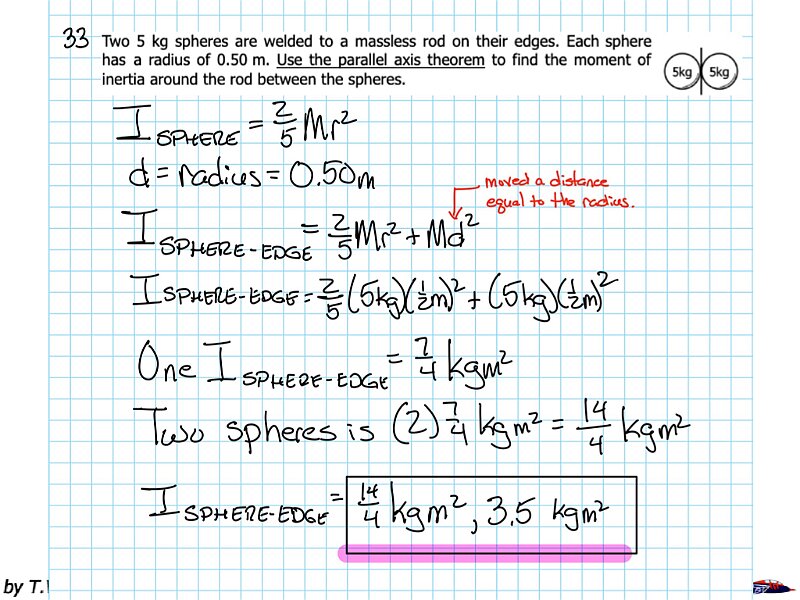 33 Two 5 kg spheres are welded to a massless rod on their edges. Each sphere
has a radius of 0.50 m. Use the parallel axis theorem to find the moment of
inertia around the rod between the spheres.
5kg 5kg
I SPHERE = 2/5 Mr²
d = radius = 0.50m
moved a distance
equal to the radius.
I SPHERE-EDGE = 2/5 Mr² + Md²
I SPHERE-EDGE = 2/5 (5kg)(1/2m)² + (5kg)(1/2m)²
One I SPHERE-EDGE = 7/4 kgm²
Two spheres is (2) 7/4 kgm² = 14/4 kgm²
I SPHERE-EDGE = 14/4 kgm², 3.5 kgm²
by T.